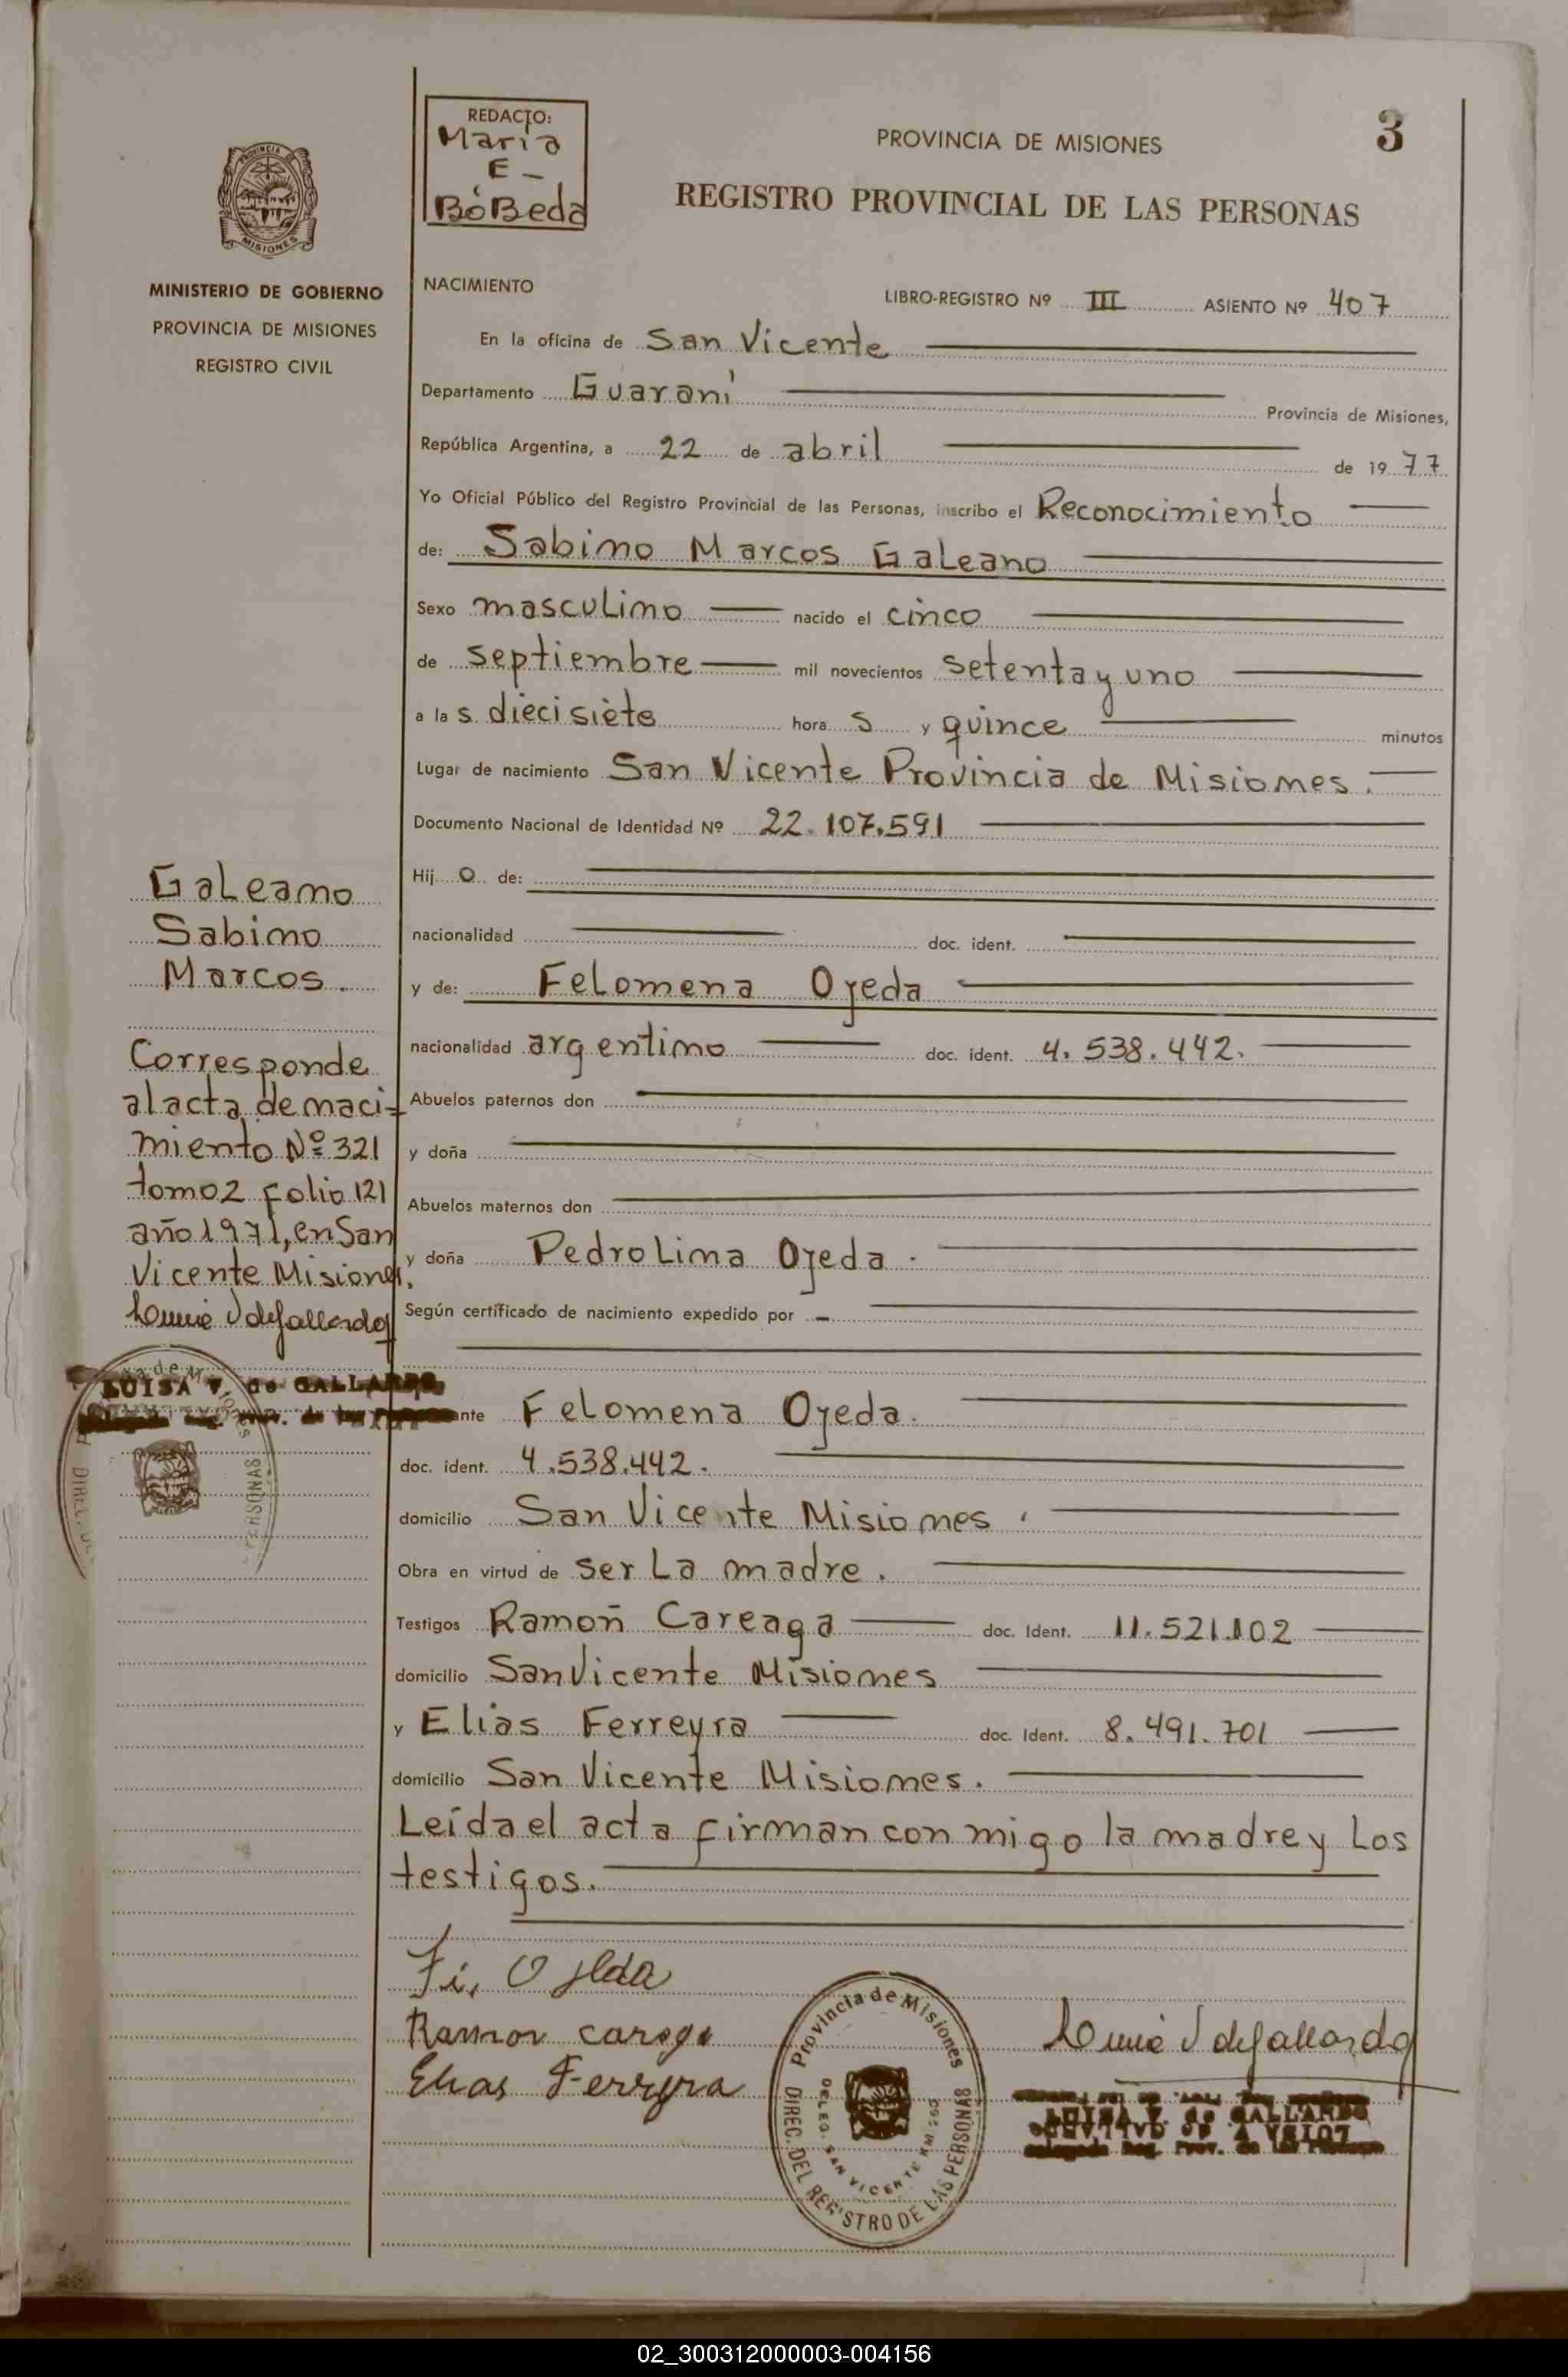 REDACTO:
Maria
E -
BóBeda
PROVINCIA DE MISIONES
3
REGISTRO PROVINCIAL DE LAS PERSONAS
PROVINCIA DE
MISIONES
MINISTERIO DE GOBIERNO
PROVINCIA DE MISIONES
REGISTRO CIVIL
NACIMIENTO
LIBRO-REGISTRO Nº III ASIENTO Nº 407
En la oficina de San Vicente
Departamento Guaraní Provincia de Misiones,
República Argentina, a 22 de abril de 1977
Yo Oficial Público del Registro Provincial de las Personas, inscribo el Reconocimiento
de: Sabino Marcos Galeano
Sexo masculino nacido el cinco
de septiembre mil novecientos setenta y uno
a las diecisiete horas y quince minutos
Lugar de nacimiento San Vicente Provincia de Misiones.
Documento Nacional de Identidad Nº 22.107.591
Hijo de:
nacionalidad doc. ident.
y de: Felomena Ojeda
nacionalidad argentino doc. ident. 4.538.442.
Abuelos paternos don
y doña
Abuelos maternos don
y doña Pedrolina Ojeda.
Según certificado de nacimiento expedido por -
ante Felomena Ojeda.
doc. ident. 4.538.442.
domicilio San Vicente Misiones.
Obra en virtud de ser La madre.
Testigos Ramoñ Careaga doc. Ident. 11.521.102
domicilio San Vicente Misiones
y Elias Ferreyra doc. Ident. 8.491.701
domicilio San Vicente Misiones.
Leída el acta firman con migo la madre y Los
testigos.
Galeano
Sabino
Marcos.
Corresponde
al acta de naci-
miento Nº 321
tomo 2 folio 121
año 1971, en San
Vicente Misiones.
V de Gallardo
LUISA V. de GALLARDO
DIREC. PERSONAS
Ojeda
Ramon carega
Elias Ferryra
V de Gallardo
Provincia de Misiones
DELEG. SAN VICENTE KM
DIREC. DEL REGISTRO DE LAS PERSONAS
LUISA V. de GALLARDO
02_300312000003-004156